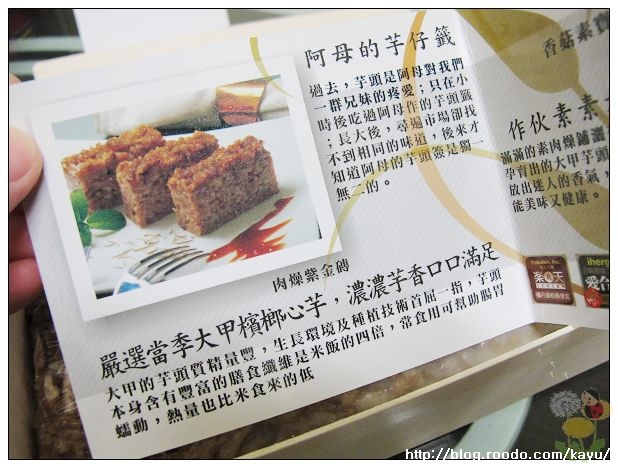 阿母的芋仔籤
過去，芋頭是阿母對我們
一群兄妹的疼愛；只在小
時後吃過阿母作的芋頭籤
；長大後，尋遍市場卻找
不到相同的味道，後來才
知道阿母的芋頭簽是獨一
無二的。
肉燥紫金磚
嚴選當季大甲檳榔心芋，濃濃芋香口口滿足
大甲的芋頭質精量豐，生長環境及種植技術首屈一指，芋頭
本身含有豐富的膳食纖維是米飯的四倍，常食用可幫助腸胃
蠕動，熱量也比米食來的低
香菇素寶
作伙素素
滿滿的素肉燥鋪灑
孕育出的大甲芋頭
放出迷人的香氣，
能美味又健康。
樂天
http://blog.roodo.com/kayu/